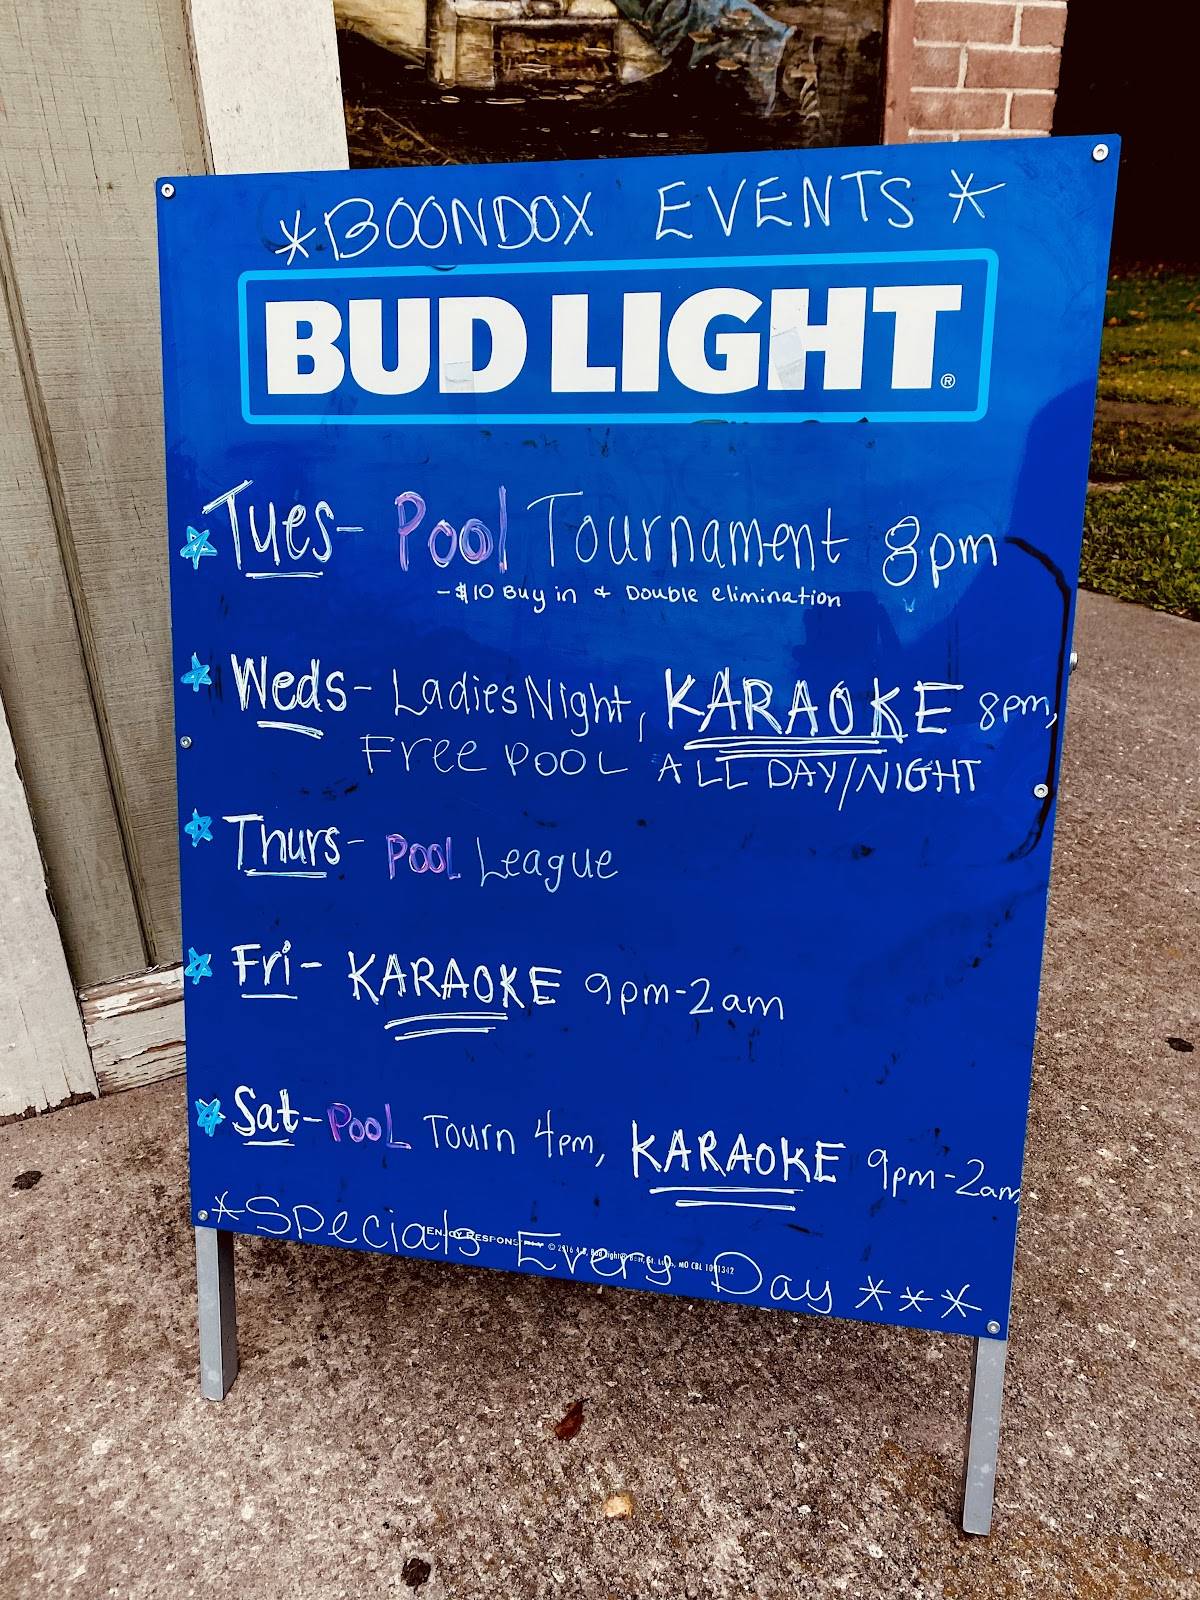 *BOONDOX EVENTS*
BUD LIGHT®
Tues- Pool Tournament 8pm
-$10 Buy in & Double elimination
Weds- Ladies Night, KARAOKE 8pm,
FREE POOL ALL DAY/NIGHT
Thurs- POOL League
Fri- KARAOKE 9pm-2am
Sat- POOL Tourn 4pm, KARAOKE 9pm-2am
*Specials Every Day ***
ENJOY © 2016 MO